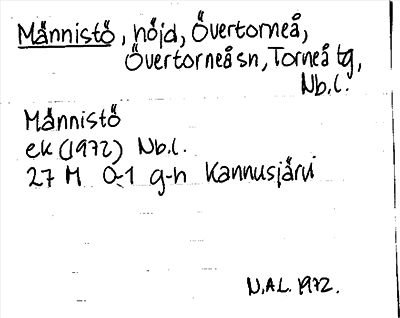 Männistö, höjd, Övertorneå,
Övertorneå sn, Torneå tg,
Nb.l.
Männistö
ek (1972) Nb.l.
27 M 0-1 g-h Kannusjärvi
N.Al. 1972.